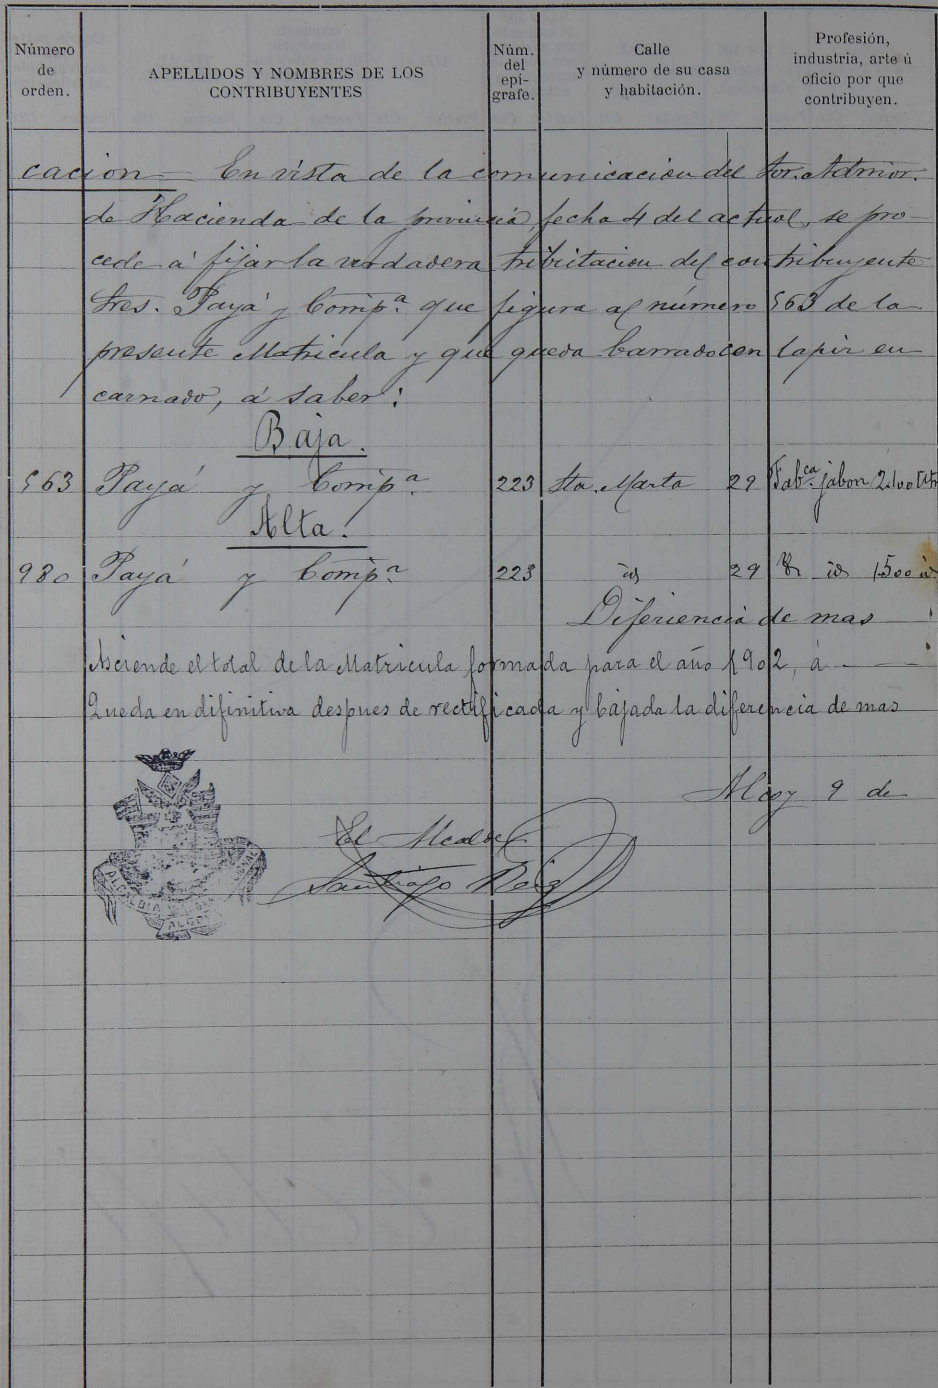 Número de orden.
APELLIDOS Y NOMBRES DE LOS CONTRIBUYENTES
Núm. del epí-grafe.
Calle y número de su casa y habitación.
Profesión, industria, arte ú oficio por que contribuyen.
cacion = En vista de la comunicacion del Sor. Admor.
de Hacienda de la provincia, fecha 4 del actual, se pro-
cede á fijar la verdadera tributacion del contribuyente
Sres. Payá y Comp.ª que figura al número 563 de la
presente Matricula y que queda barrado con lapiz en
carnado, á saber:
Baja.
563 Payá y Comp.ª 223 Sta. Marta 29 Fab.ca jabon 2.100 litr
Alta.
980 Payá y Comp.ª 223 id 29 id 1500 id
Diferiencia de mas
Asciende el total de la Matricula formada para el año 1902, á
Queda en difinitiva despues de rectificada y bajada la diferencia de mas
Alcoy 9 de
El Alcalde
Santiago Reig
ALCALDIA
ALCOY